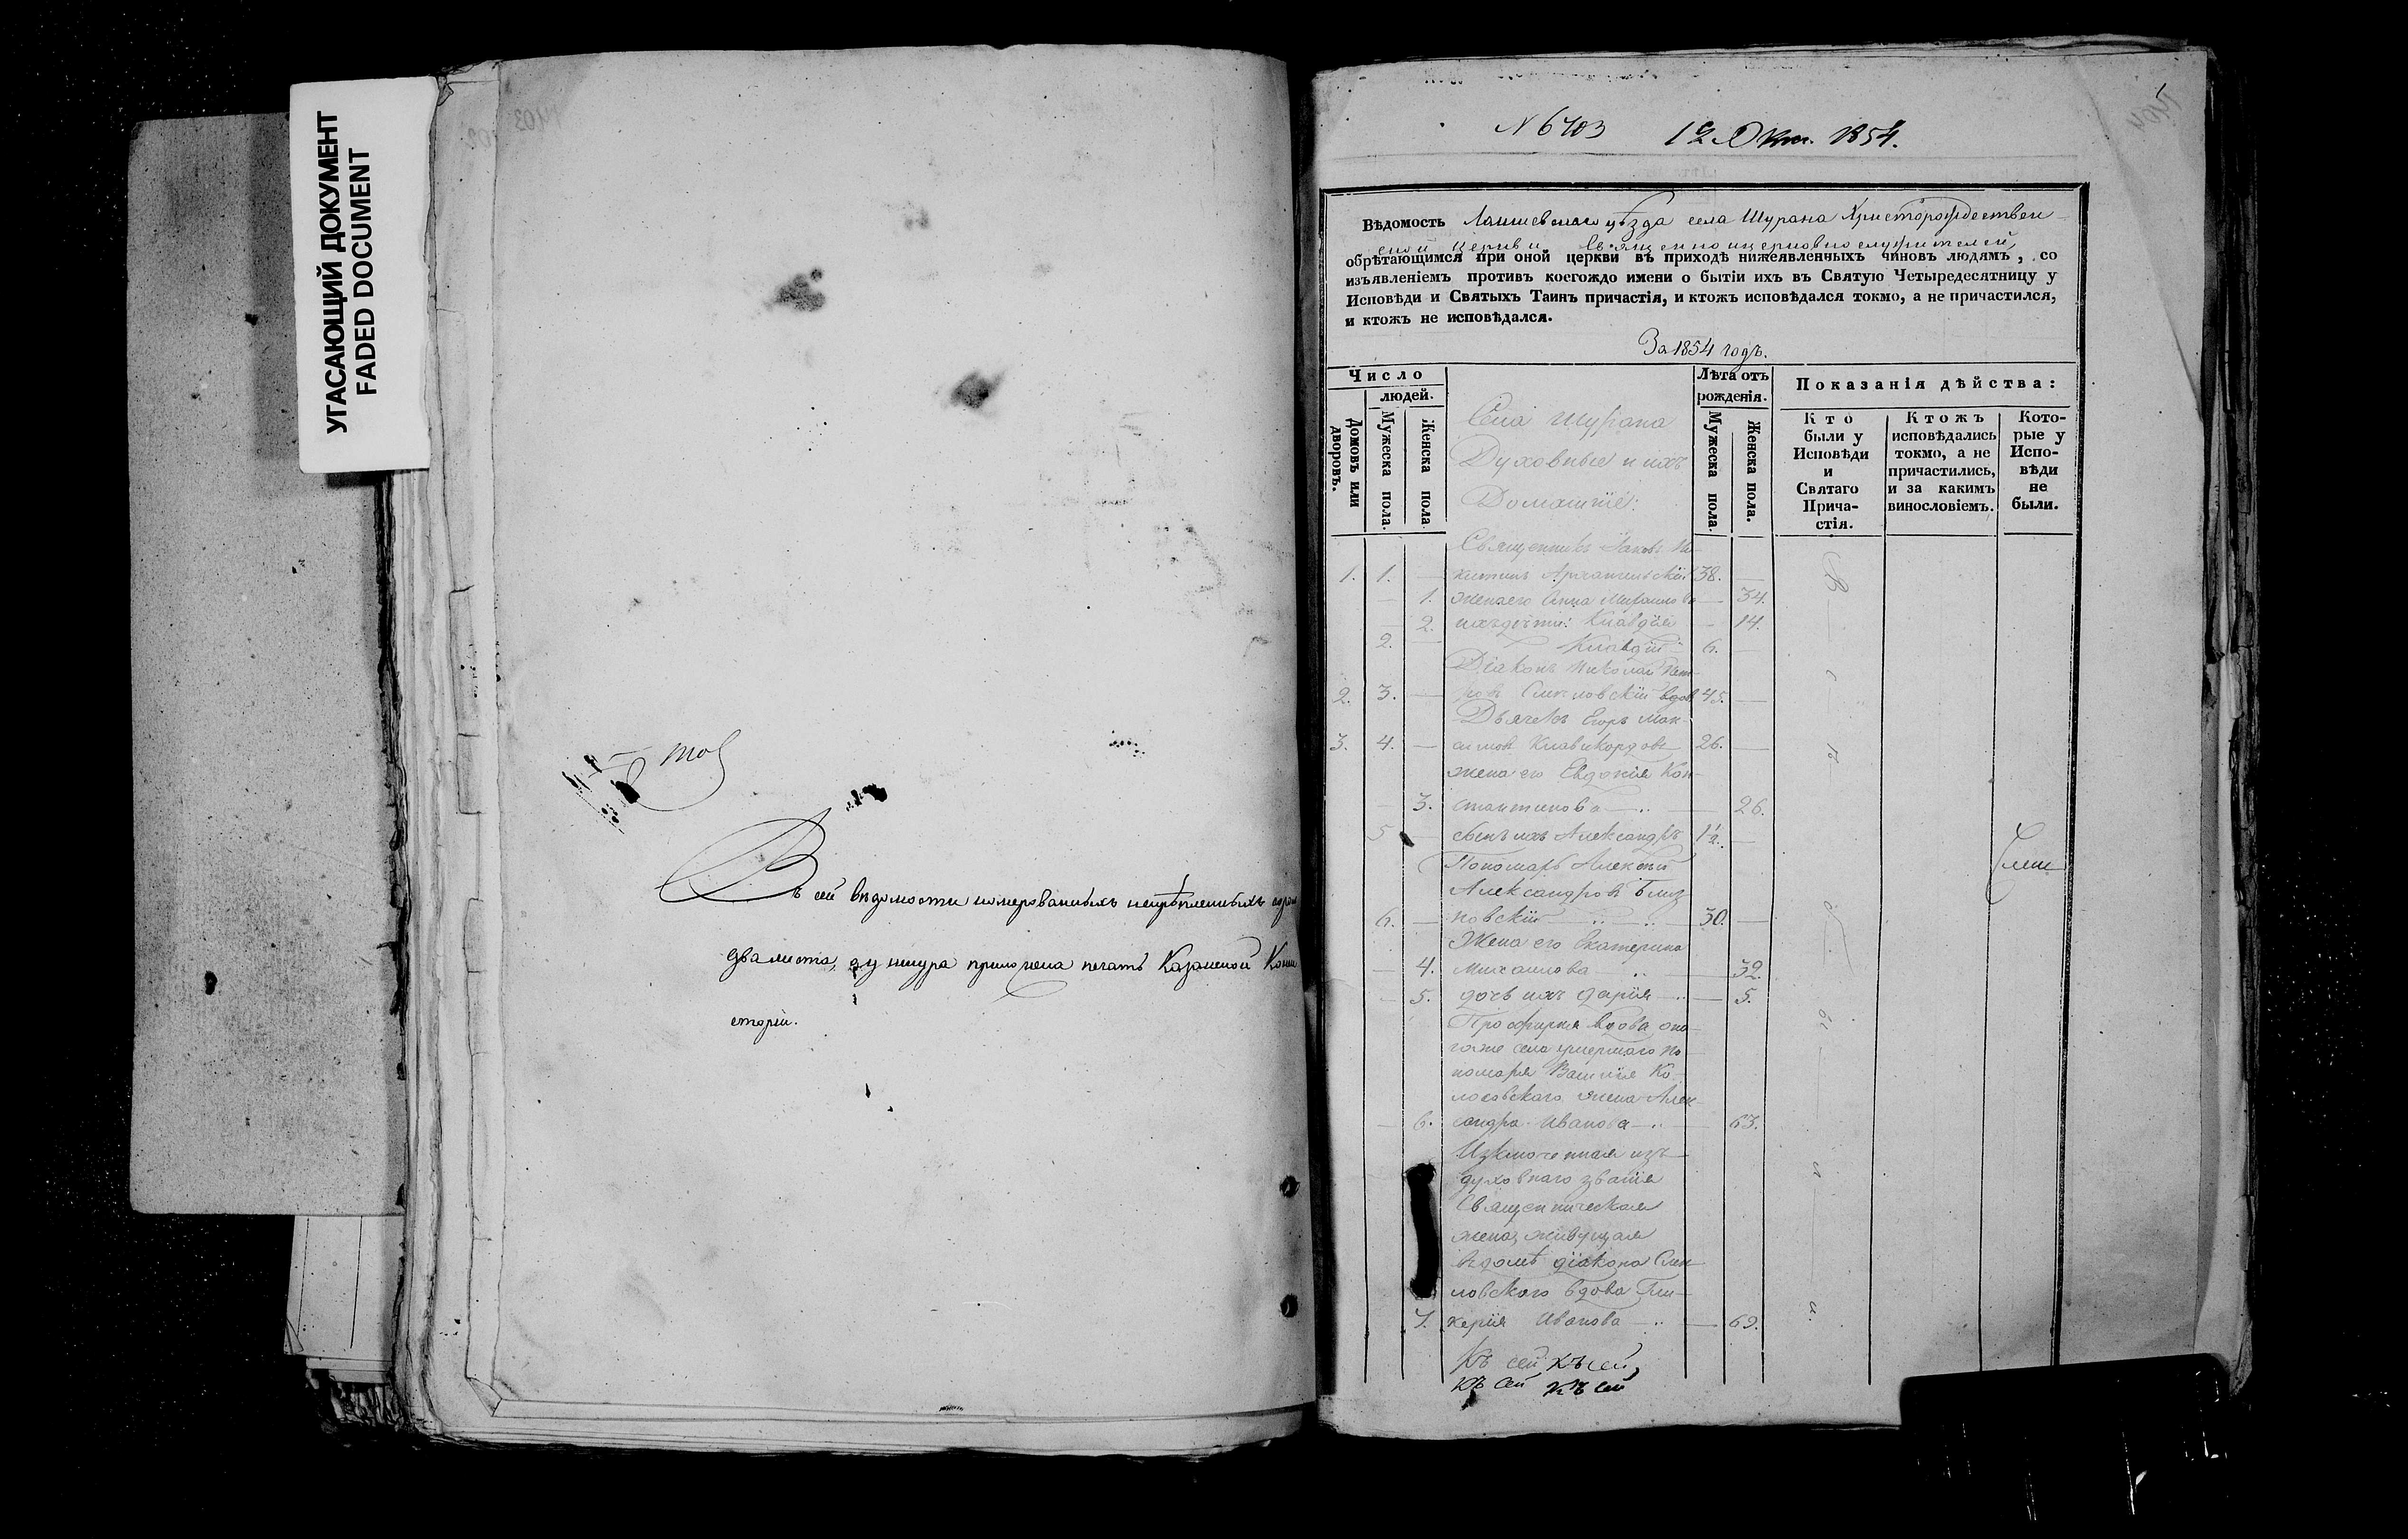 УГАСАЮЩИЙ ДОКУМЕНТ
FADED DOCUMENT
Въ сей вѣдомости номерованныхъ
два листа, у шнура приложена печать Казанской Конси
сторіи.
N 6703 12 Окт. 1854.
Вѣдомость Лаишевскаго уѣзда села Шурана Христорождествен
ской Церкви Священноцерковнослужителей,
обрѣтающимся при оной церкви въ приходѣ нижеявленныхъ чиновъ людямъ, со
изъявленіемъ противъ коегождо имени о бытіи ихъ въ Святую Четыредесятницу у
Исповѣди и Святыхъ Таинъ причастія, и ктожъ исповѣдался токмо, а не причастился,
и ктожъ не исповѣдался.
За 1854 годъ.
Число
людей.
Домовъ или дворовъ.
Мужеска пола.
Женска пола
Села Шурана
Духовные и ихъ
Домашніе:
Лѣта отъ
рожденія.
Мужеска пола.
Женска пола.
Показанія дѣйства:
Кто
были у
Исповѣди
и
Святаго
Прича-
стія.
Ктожъ
исповѣдались
токмо, а не
причастились,
и за какимъ
винословіемъ.
Кото-
рые у
Испо-
вѣди
не
были.
Священникъ Іаковъ Ни-
1. 1. — китинъ Архангельскій 38. —
— 1. жена его Анна Михаилова — 34.
— 2. ихъ дѣти: Клавдія — 14.
2. — Клавдій 6. —
Діаконъ Николай Пет-
2. 3. — ровъ Смѣловскій вдов 45. —
Дьячекъ Егоръ Мак-
3. 4. — симовъ Клавикордовъ 26. —
жена его Евдокія Кон-
— 3. стантинова — 26.
5 — сынъ ихъ Александръ 1½. —
Пономарь Алексѣй
Александровъ Близ
6. — новскій 30. —
Жена его Екатерина
— 4. Михаилова — 32.
— 5. дочь ихъ Дарія — 5.
Просфирня вдова она
гоже села умершаго по
номаря Василія Ко-
локовскаго жена Алек-
— 6. сандра Иванова — 63.
Изключенная изъ
духовнаго званія
Священническая
жена, живущая
въ домѣ діакона Смѣ-
ловскаго вдова Гли-
7. керія Иванова — 69.
Къ сей Къ сей,
Къ сей Къ сей